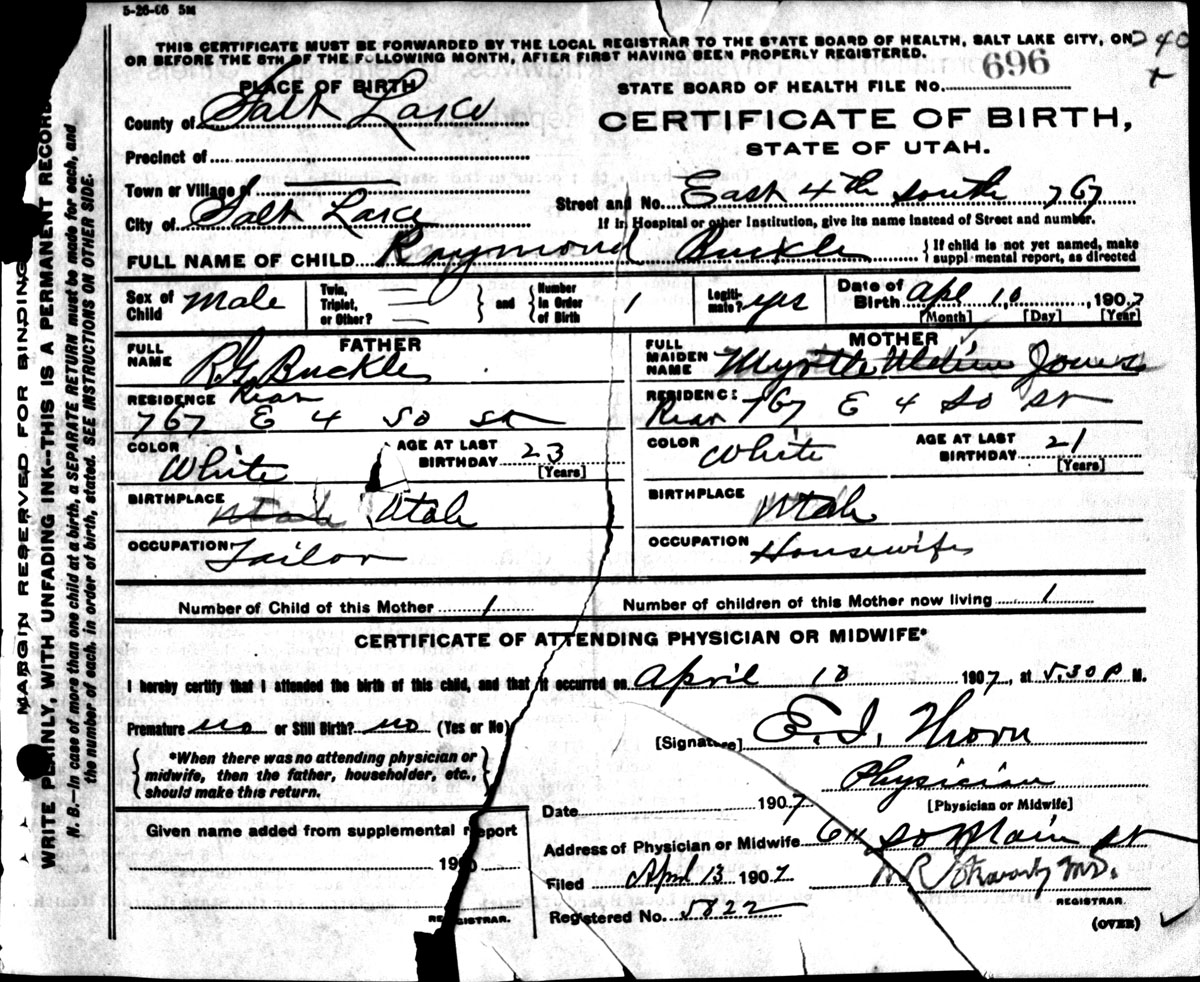 5-26-06 5M
THIS CERTIFICATE MUST BE FORWARDED BY THE LOCAL REGISTRAR TO THE STATE BOARD OF HEALTH, SALT LAKE CITY, ON
OR BEFORE THE 5TH OF THE FOLLOWING MONTH, AFTER FIRST HAVING BEEN PROPERLY REGISTERED.
240
696
STATE BOARD OF HEALTH FILE NO.
PLACE OF BIRTH
County of Salt Lake
CERTIFICATE OF BIRTH,
STATE OF UTAH.
Precinct of
Town or Village of
Street and No. East 4th South 767
City of Salt Lake
If in Hospital or other Institution, give its name instead of Street and number.
FULL NAME OF CHILD Raymond Buckle
If child is not yet named, make
supplemental report, as directed
Sex of Child Male
Twin, Triplet, or Other?
and
Number in Order of Birth 1
Legitimate? yes
Date of Birth Apl 10, 1907
[Month] [Day] [Year]
FATHER
FULL NAME R G Buckle
RESIDENCE Rear
767 E 4 So St
COLOR White
AGE AT LAST BIRTHDAY 23
[Years]
BIRTHPLACE Utah Utah
OCCUPATION Tailor
MOTHER
FULL MAIDEN NAME Myrtle Jones
RESIDENCE
Rear 767 E 4 So St
COLOR White
AGE AT LAST BIRTHDAY 21
[Years]
BIRTHPLACE Utah
OCCUPATION Housewife
Number of Child of this Mother 1
Number of children of this Mother now living 1
CERTIFICATE OF ATTENDING PHYSICIAN OR MIDWIFE*
I hereby certify that I attended the birth of this child, and that it occurred on April 10 1907, at 5.30 P M.
Premature no or Still Birth? no (Yes or No)
[Signature] E. I. Thorn
*When there was no attending physician or
midwife, then the father, householder, etc.,
should make this return.
Physician
[Physician or Midwife]
Date 1907
Given name added from supplemental report
190
REGISTRAR.
Address of Physician or Midwife So Main St
Filed April 13 1907
M.D.
REGISTRAR.
Registered No. 5822
(OVER)
MARGIN RESERVED FOR BINDING
WRITE PLAINLY, WITH UNFADING INK--THIS IS A PERMANENT RECORD.
N. B.—In case of more than one child at a birth, a SEPARATE RETURN must be made for each, and
the number of each, in order of birth, stated. SEE INSTRUCTIONS ON OTHER SIDE.